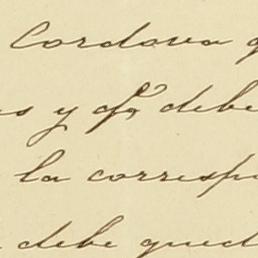 Cordova q
es y qe debe
la corresp
debe qued